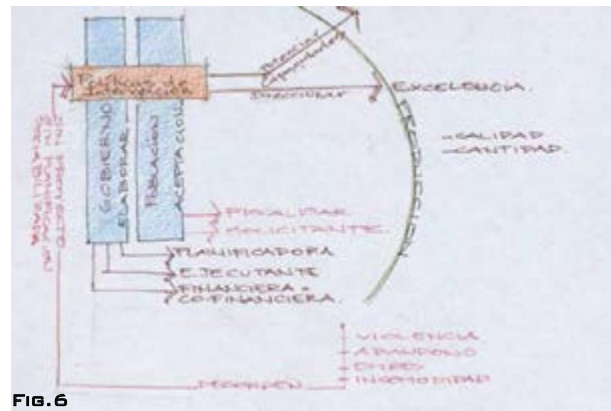 Políticas de
Intervención
Potenciar
capacidades
Direccionar
EXCELENCIA.
PRODUCCION
-CALIDAD
-CANTIDAD.
GOBIERNO
ELABORAR
POBLACION
ACEPTACION
FISCALIZAR
SOLICITANTE.
PLANIFICADORA
EJECUTANTE
FINANCIERA o
CO-FINANCIERA.
SIN PROYECTO
SIN PLANIFICACION
VIOLENCIA
ABANDONO
INCOMODIDAD
FIG.6